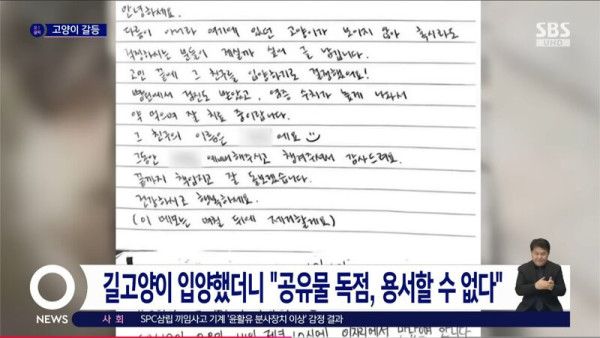 고양이 갈등
SBS
UHD
안녕하세요.
다름이 아니라 여기에 있던 고양이가 보이지 않아 혹시라도
걱정하시는 분들이 계실까 싶어 글 남깁니다.
고민 끝에 그 친구를 입양하기로 결정했어요!
병원에서 검진도 받았고, 염증 수치가 높게 나와서
약 먹으며 잘 치료 중이랍니다.
그 친구의 이름은 에요
그동안 예뻐해주시고 챙겨주셔서 감사드려요.
끝까지 책임지고 잘 돌보겠습니다.
건강하시고 행복하세요.
(이 메모는 며칠 뒤에 제거할게요)
길고양이 입양했더니 "공유물 독점, 용서할 수 없다"
NEWS
사 회
SPC삼립 끼임사고 기계 '윤활유 분사장치 이상' 감정 결과